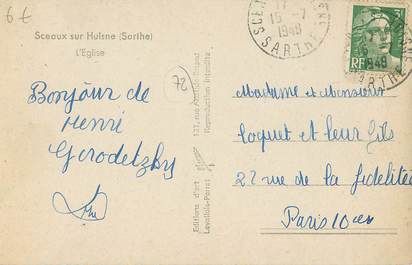 6€
Sceaux sur Huisne (Sarthe)
L'Eglise
72
Bonjour de
Henri
Gerodetzky
Editions d'art
Levallois-Perret
Reproduction interdite
15 -7
1949
SARTHE
RF
1949
Madame et Monsieur
Loquet et leur fils
27 rue de la fidelitée
Paris 10em